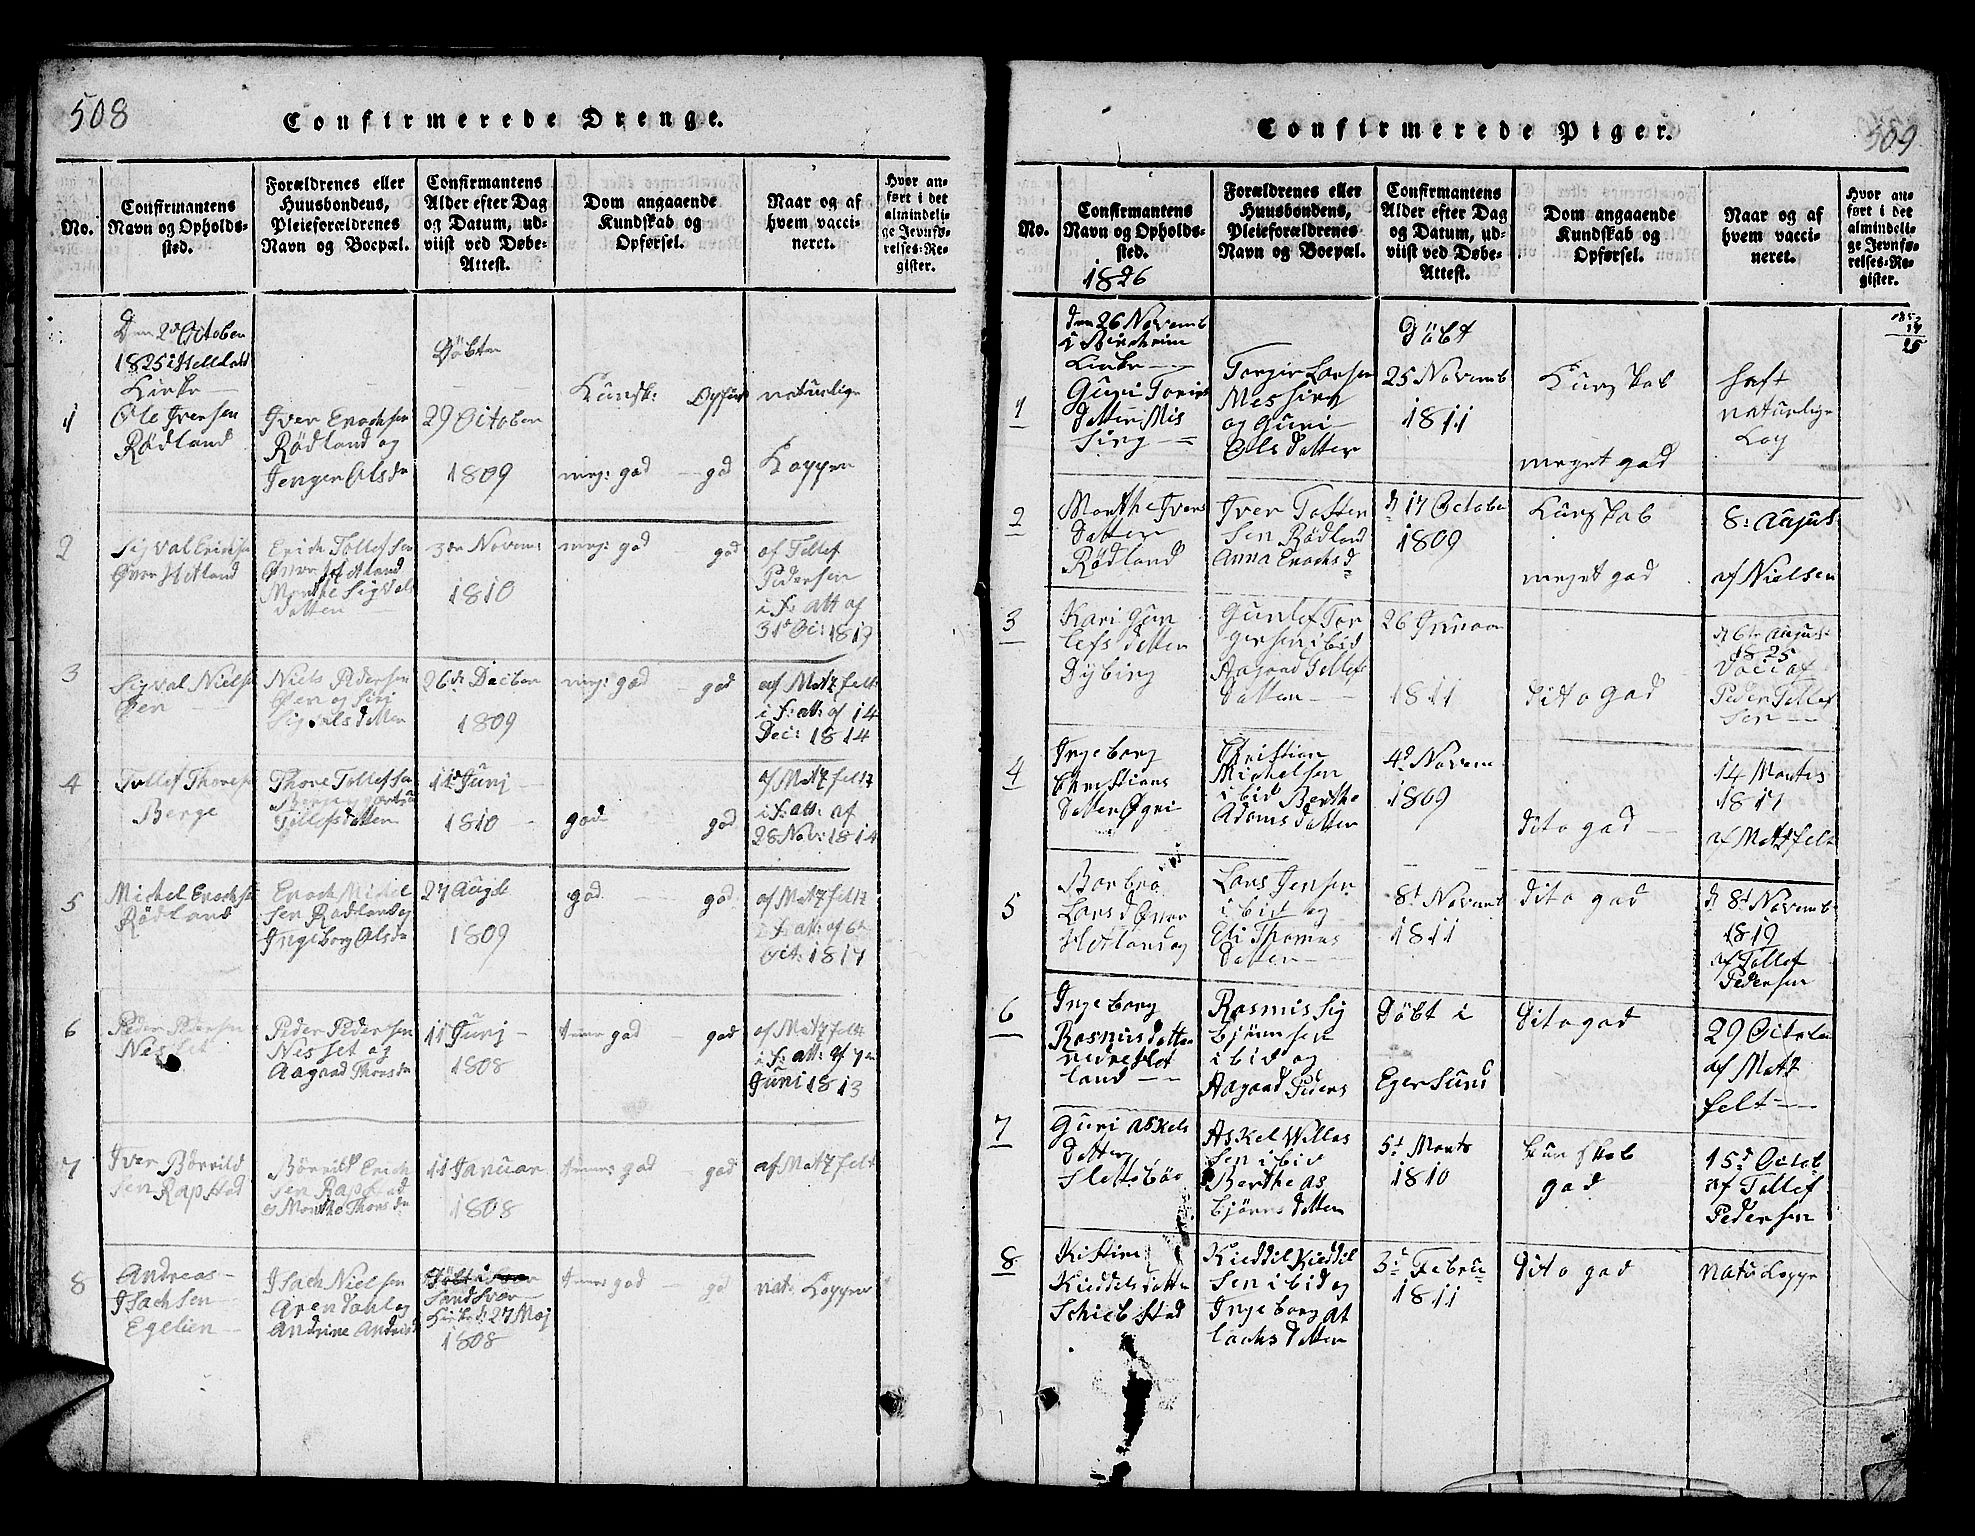 508
Confirmerede Drenge.
No.
Confirmantens
Navn og Opholds-
sted.
Forældrenes eller
Huusbondens,
Pleieforældrenes
Navn og Boepæl.
Confirmantens
Alder efter Dag
og Datum, ud-
viist ved Døbe-
Attest.
Dom angaaende
Kundskab og
Opførsel.
Naar og af
hvem vacci-
neret.
Hvor an-
ført i det
almindeli-
ge Jevnfø-
relses-Re-
gister.
Den 2d October
1825 i Helleland
Kirke
1
Ole Iversen
Rødland
Iver Enochsen
Rødland og
Ole
Døbte
29 October
1809
Kundsk: Opførs
meg: god god
naturlige
Kopper
2
Sigval Erichsen
Øvre Hetland
Erich Tollefsen
Øvre Hetland
Marthe Sigvals
datter
3de Novem:
1810
meg: god god
af Tollef
Pedersen
i f: att af
31d Oc: 1819
3
Sigval Nielsen
Øen
Niels Pedersen
Øen og Siri
Sigvalsdatter
26de December
1809
meg: god god
af Matzfelt
i f: att: af 14
Dec: 1814
4
Tollef Thorsen
Berge
Thore Tollefsen
Berge
Tollefsdatter
11te Junj
1810
god god
af Matzfelt
i f: att: af
28 Nov: 1814
5
Michel Enochsen
Rødland
Enoch Michel
sen Rødland og
Ingeborg Olsda
27 Augst
1809
god god
af Matzfelt
i f: att: af 6te
Oct: 1817
6
Peder Pedersen
Nesset
Peder Pedersen
Nesset og
Aagaad Thorsda
11 Junj
1808
god god
af Matzfelt
i f: att: af 7de
Juni 1813
7
Iver Børrild
sen Rapstad
Børrild Erich
sen Rapstad
og Marthe Thorsda
11 Januar
1808
god god
af Matzfelt
8
Andreas
Isachsen
Egelien
Isach Nielsen
Arendahl og
Andrine Andreisd
Døbt i
Sandsvær
Kirke d: 27 Maj
1808
god god
nat: Kopper
509
Confirmerede Piger.
No.
Confirmantens
Navn og Opholds-
sted.
1826
Forældrenes eller
Huusbondens,
Pleieforældrenes
Navn og Boepæl.
Confirmantens
Alder efter Dag
og Datum, ud-
viist ved Døbe-
Attest.
Dom angaaende
Kundskab og
Opførsel.
Naar og af
hvem vacci-
neret.
Hvor an-
ført i det
almindeli-
ge Jevnfø-
relses-Re-
gister.
den 26 Novemb
i Birchrim
Kirke
1
Guri Torirs
datter Mis
sing
Torger Larsen
Messing
og Guri
Olsdatter
Døbt
25 Novemb
1811
Kunskab
meget god
haft
naturlige
Kop
2
Marthe Ivers
datter
Rødland
Iver Tosten
sen Rødland
Anna Enochsd
d 17 October
1809
Kunskab
meget god
8: August
af Nielsen
3
Kari Gun
lefs datter
Dybing
Gunlef Tor
gersen ibid
Aagaad Tollef
datter
26 Januar
1811
dito god
d 6te August
1825
Vacc af
Peder Tollef
sen
4
Ingeborg
Christians
datter Øgri
Christian
Michelsen
ibid Berthe
Adamsdatter
4d Novem
1809
dito god
14 Marts
1817
af Matzfelt
5
Barbrø
Larsd Øvre
Hetland og
Lars Jensen
ibid og
Eli Thomas
datter
8d Novemb
1811
dito god
d 8d Novemb
1819
af Tollef
Pedersen
6
Ingeborg
Rasmusdatter
nedre Het
land
Rasmis Sig
bjørnsen
ibid og
Aagaad Peders
Døbt i
Egersund
dito god
29 October
af Matz
felt
7
Guri Askels
datter
Slettebøe
Askel Willas
sen ibid
Berthe As
bjørns datter
5d Marts
1810
kunskab
god
15d Octob
af Tollef
Pedersen
8
Kistine
Kieddelsdatter
Schiebstad
Kieddil Kieddil
sen ibid og
Ingeborg At
lachs datter
3d Febru
1811
dito god
Nat: Koppe